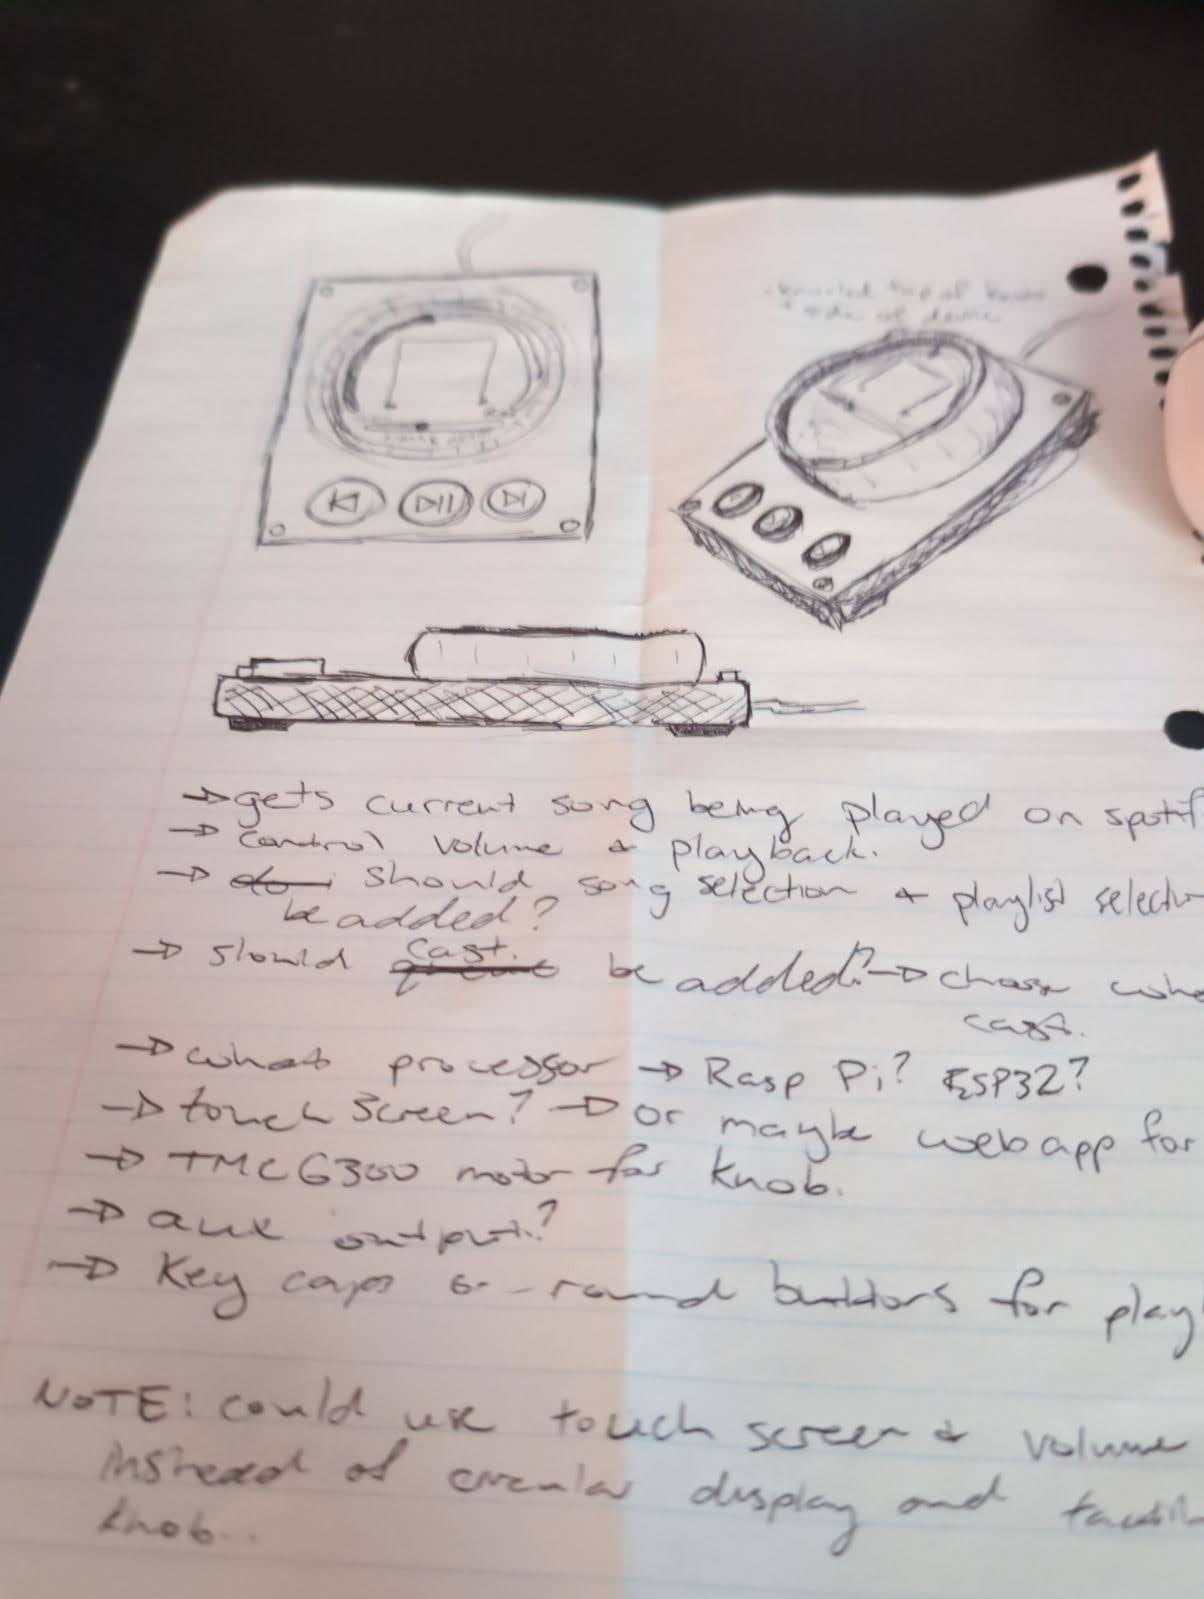 → gets current song being played on spotif
→ control volume & playback.
→ should song selection & playlist selectio
be added?
→ slould cast. be added? → chose whe
cast.
→ what processor → Rasp Pi? ESP32?
→ touch screen? → or maybe webapp for
→ TMC6300 motor for knob.
→ aux output?
→ Key caps or round buttons for play
NOTE: could use touch screen & volume
instead of circular display and tactil
knob..